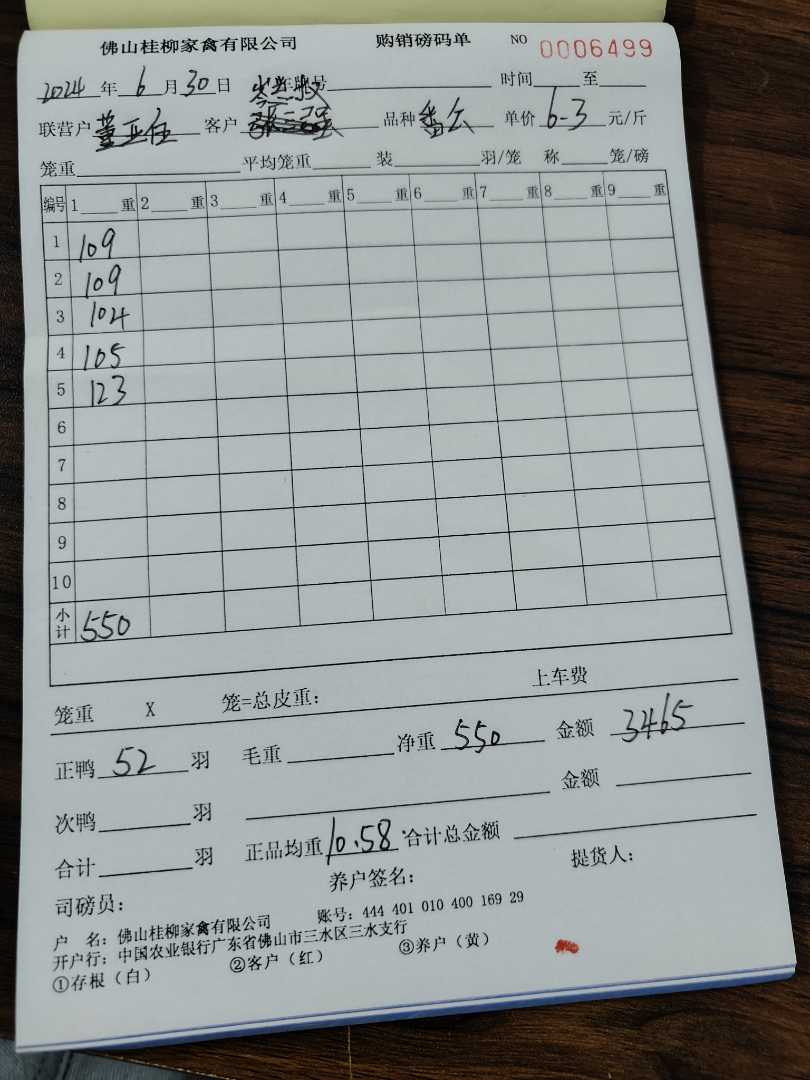 佛山桂柳家禽有限公司 购销磅码单 NO 0006499
2024 年 6 月 30 日 车牌号 时间 至
联营户 董亚任 客户 品种 番公 单价 6-3 元/斤
笼重 平均笼重 装 羽/笼 称 笼/磅
编号 1 重 2 重 3 重 4 重 5 重 6 重 7 重 8 重 9 重
1 109
2 109
3 104
4 105
5 123
6
7
8
9
10
小计 550
笼重 X 笼=总皮重: 上车费
正鸭 52 羽 毛重 净重 550 金额 3465
次鸭 羽 金额
合计 羽 正品均重 10.58 合计总金额
司磅员: 养户签名: 提货人:
户 名: 佛山桂柳家禽有限公司 账号: 444 401 010 400 169 29
开户行: 中国农业银行广东省佛山市三水区三水支行
①存根(白) ②客户(红) ③养户(黄)